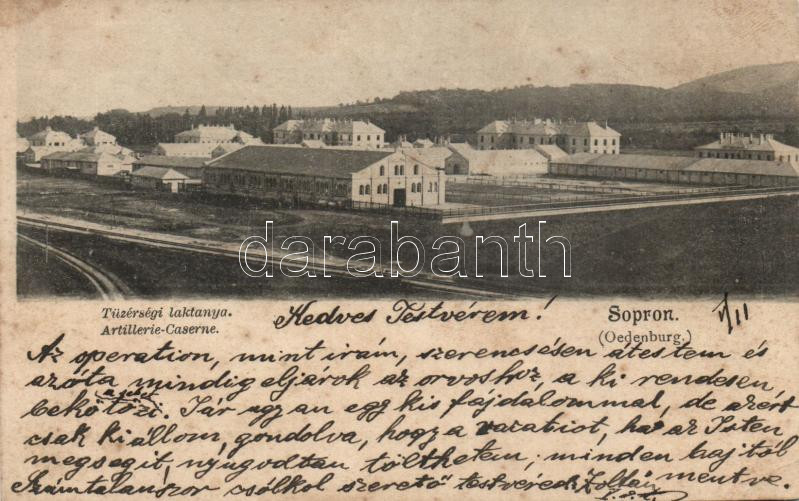 darabanth
Tüzérségi laktanya.
Artillerie-Caserne.
Sopron.
(Oedenburg.)
Kedves Testvérem!
V/11
Az operation, mint irám, szerencsésen átestem és
azóta mindig eljárok az orvoshoz, a ki rendesen
bekötözi. Jár ugyan egy kis fájdalommal, de azért
csak kiállom, gondolva, hogy a vacatiot, ha az Isten
megsegit, nyugodtan tölthetem, minden bajtól
mentve.
Számtalanszor csókol szerető testvéred: Zoltán